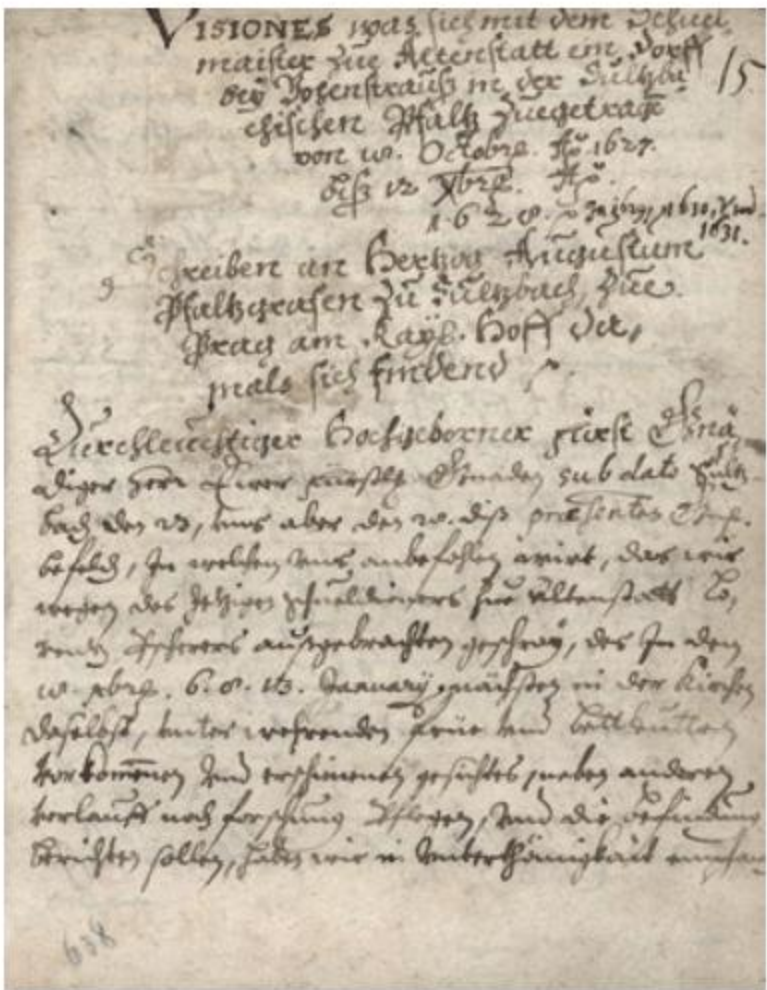 VISIONES was sich mit dem Schuel
maister zue Altenstatt ein Dorff
bey Vohenstrauß in der Sultzba
15
chischen Pfaltz zuegetragē
von 10. Octobr. Aō. 1627.
biß 12 Xbr. Aō.
1628. 1631.
Schreiben an Hertzog Augustum
Pfaltzgrafen zu Sultzbach, zue
Prag am Kays. Hoff da,
mals sich findend
Durchleuchtiger Hochgeborner Fürst Gnä
diger Herr Ewer Fürstl. Gnaden sub dato Sultz
bach den 13, uns aber den 20. diß præsentes
befelch, In welchen uns anbefohlen wirt, das wir
wegen des Jetzigen Schueldieners zue Altenstatt
außgebrachten geschray, des In den
6. 8. 13. January nächsten in der Kirchen
daselbst, unter wehrenden und bettleutten
vorkommenen und erschienenen gesichtes, neben anderen
verlauff nach forschung Pflegen, und die befindung
berichten sollen, haben wir in Unterthänigkait
638